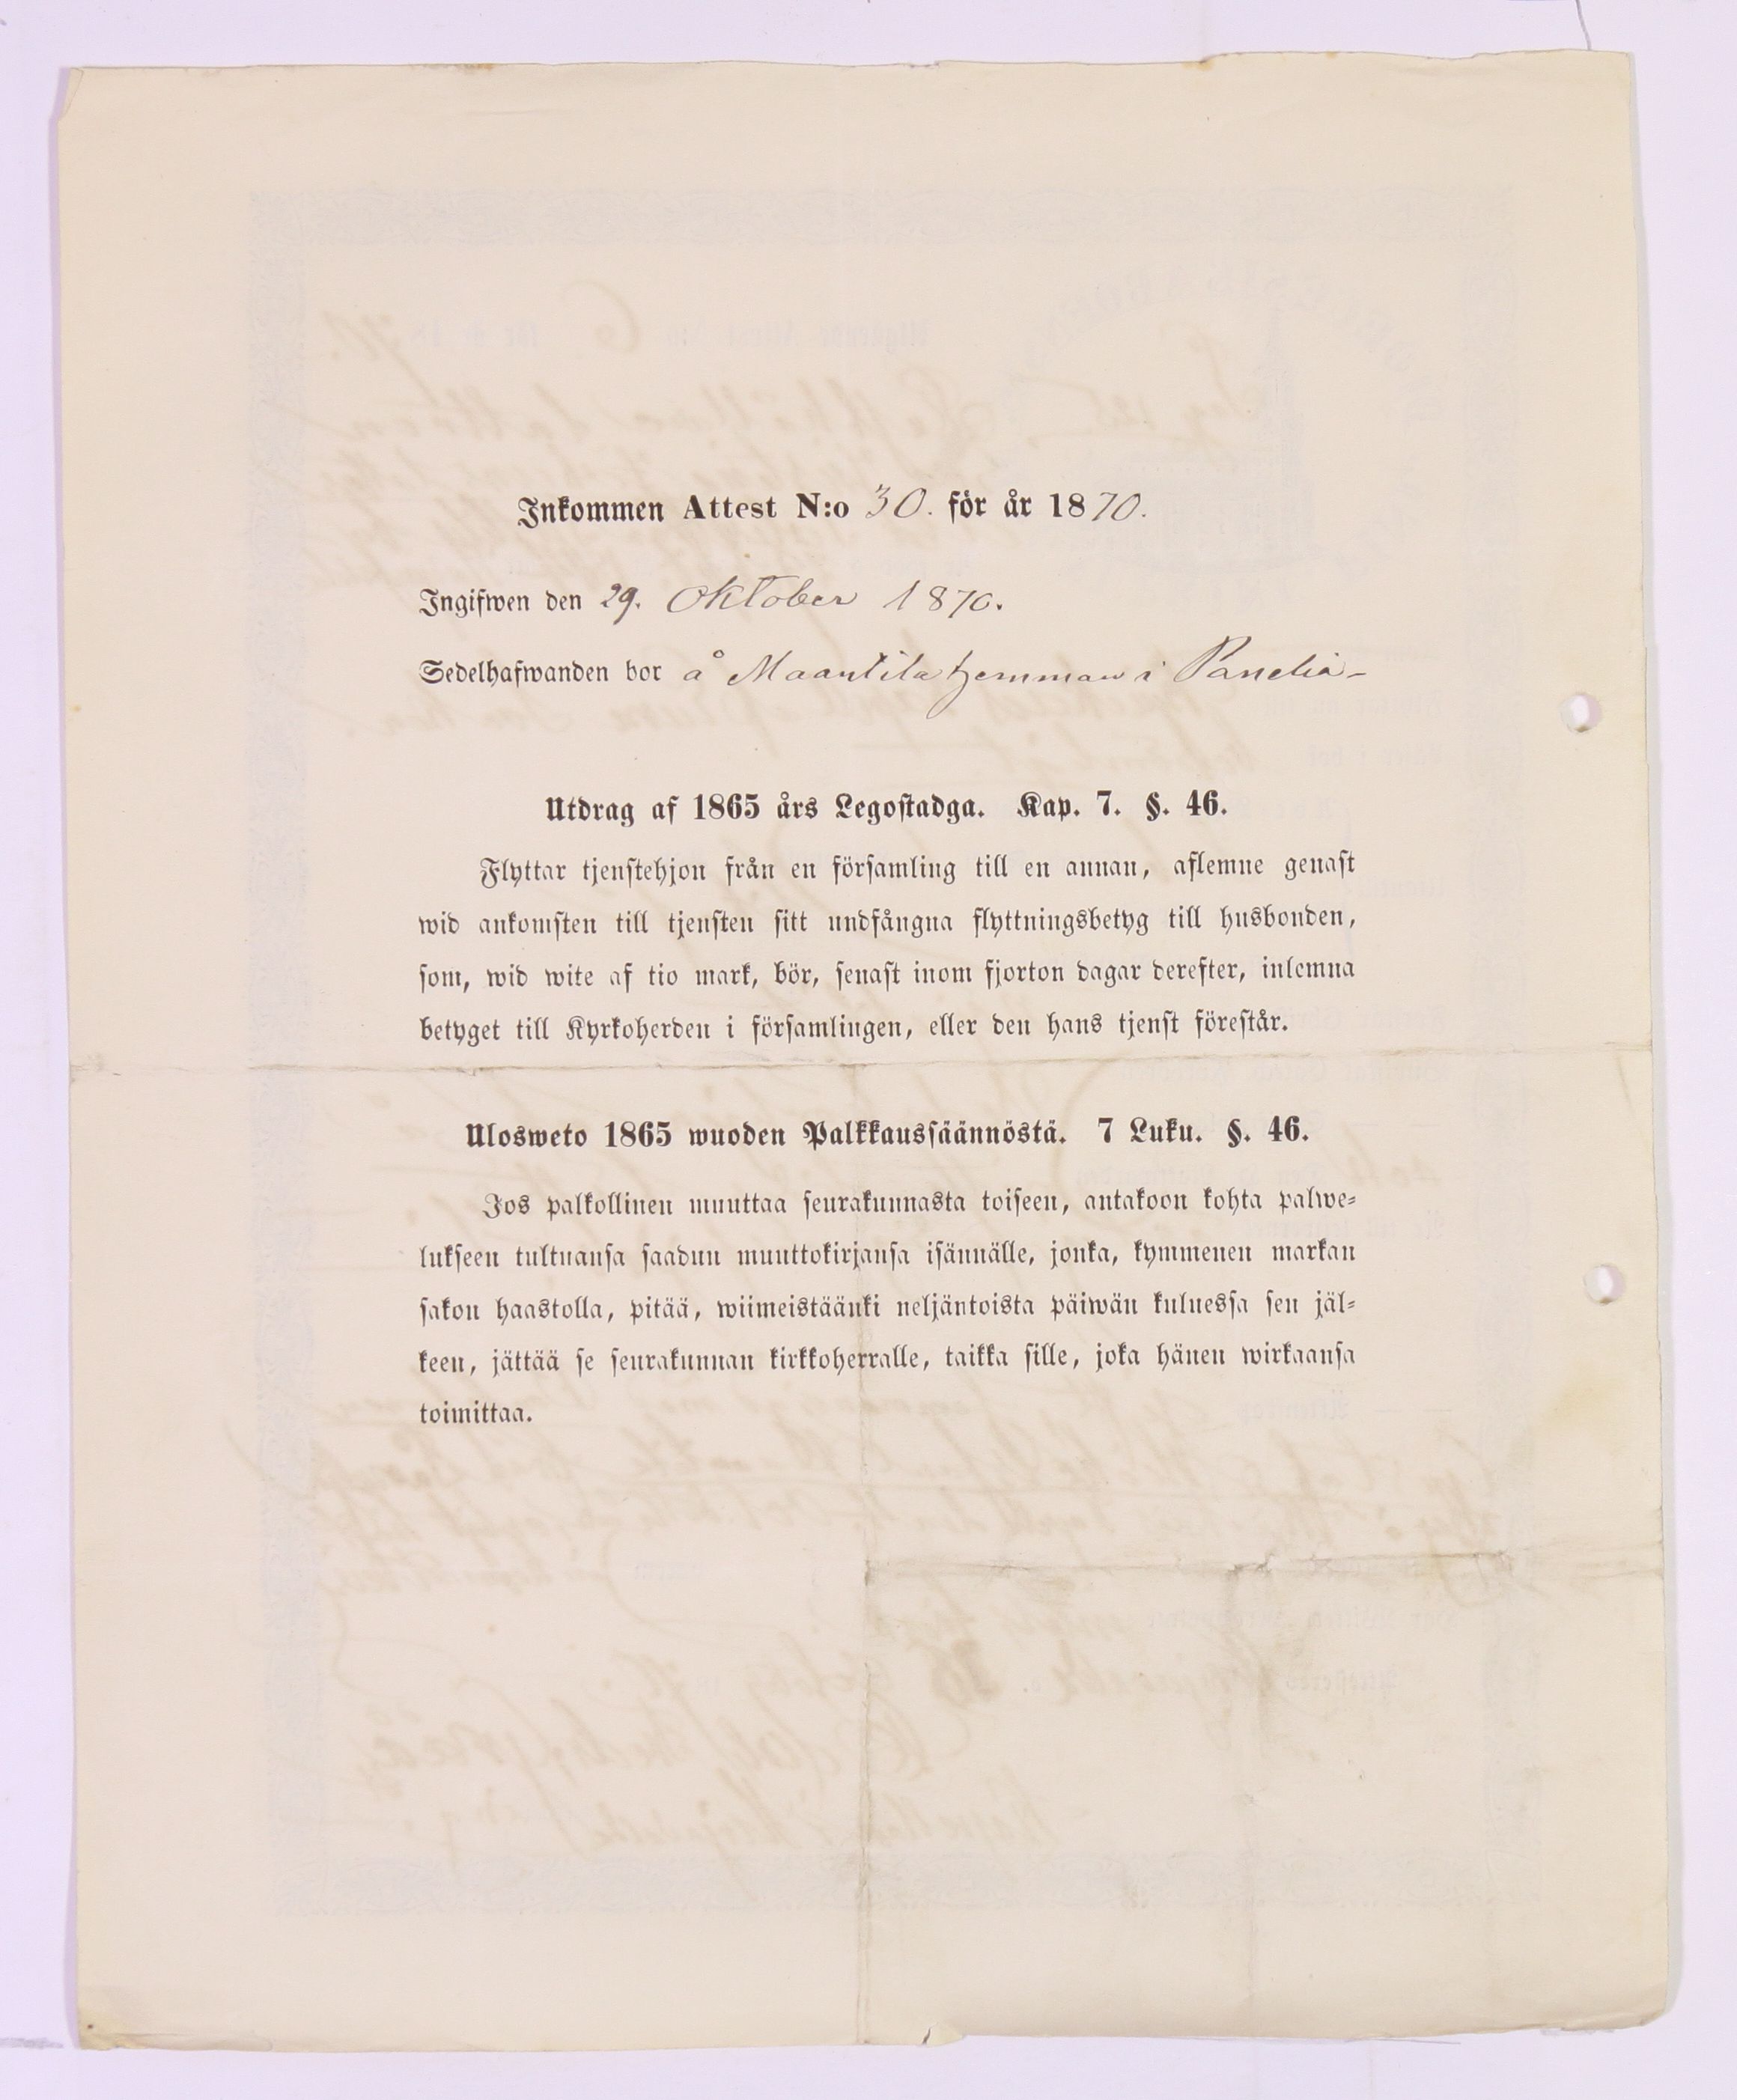 Inkommen Attest N:o 30. för år 1870.
Ingifwen den 29. Oktober 1870.
Sedelhafwanden bor å Maantila hemman i Panelia-
Utdrag af 1865 års Legostadga. Kap. 7. §. 46.
Flyttar tjenstehjon från en församling till en annan, aflemne genast
wid ankomsten till tjensten sitt undfångna flyttningsbetyg till husbonden,
som, wid wite af tio mark, bör, senast inom fjorton dagar derefter, inlemna
betyget till Kyrkoherden i församlingen, eller den hans tjenst förestår.
Ulosweto 1865 wuoden Palkkaussäännöstä. 7 Luku. §. 46.
Jos palkollinen muuttaa seurakunnasta toiseen, antakoon kohta palwe-
lukseen tultuansa saadun muuttokirjansa isännälle, jonka, kymmenen markan
sakon haastolla, pitää, wiimeistäänki neljäntoista päiwän kuluessa sen jäl-
keen, jättää se seurakunnan kirkkoherralle, taikka sille, joka hänen wirkaansa
toimittaa.